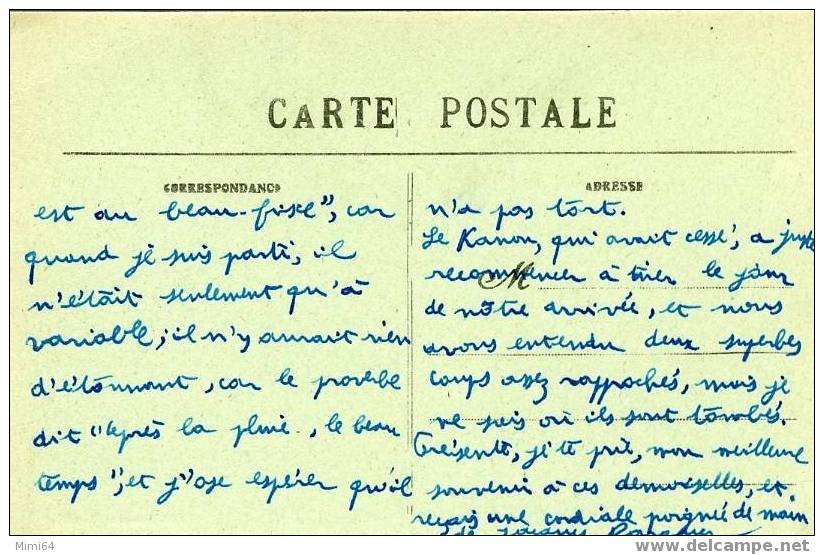 CARTE POSTALE
CORRESPONDANCE
est au beau-fixe", car
quand je suis parti, il
n'était seulement qu'à
variable; il n'y aurait rien
d'étonnant, car le proverbe
dit "après la pluie, le beau
temps", et j'ose espérer qu'il
ADRESSE
n'a pas tort.
Le Kanon, qui avait cessé, a juste
recommencer à tirer le jour
de nôtre arrivée, et nous
avons entendu deux superbes
coups assez rapprochés, mais je
ne sais où ils sont tombés.
Présente, je te prie, mon meilleure
souvenir à ces demoiselles, et
reçois une cordiale poignée de main
de Jacques
Mimi64
delcampe.net